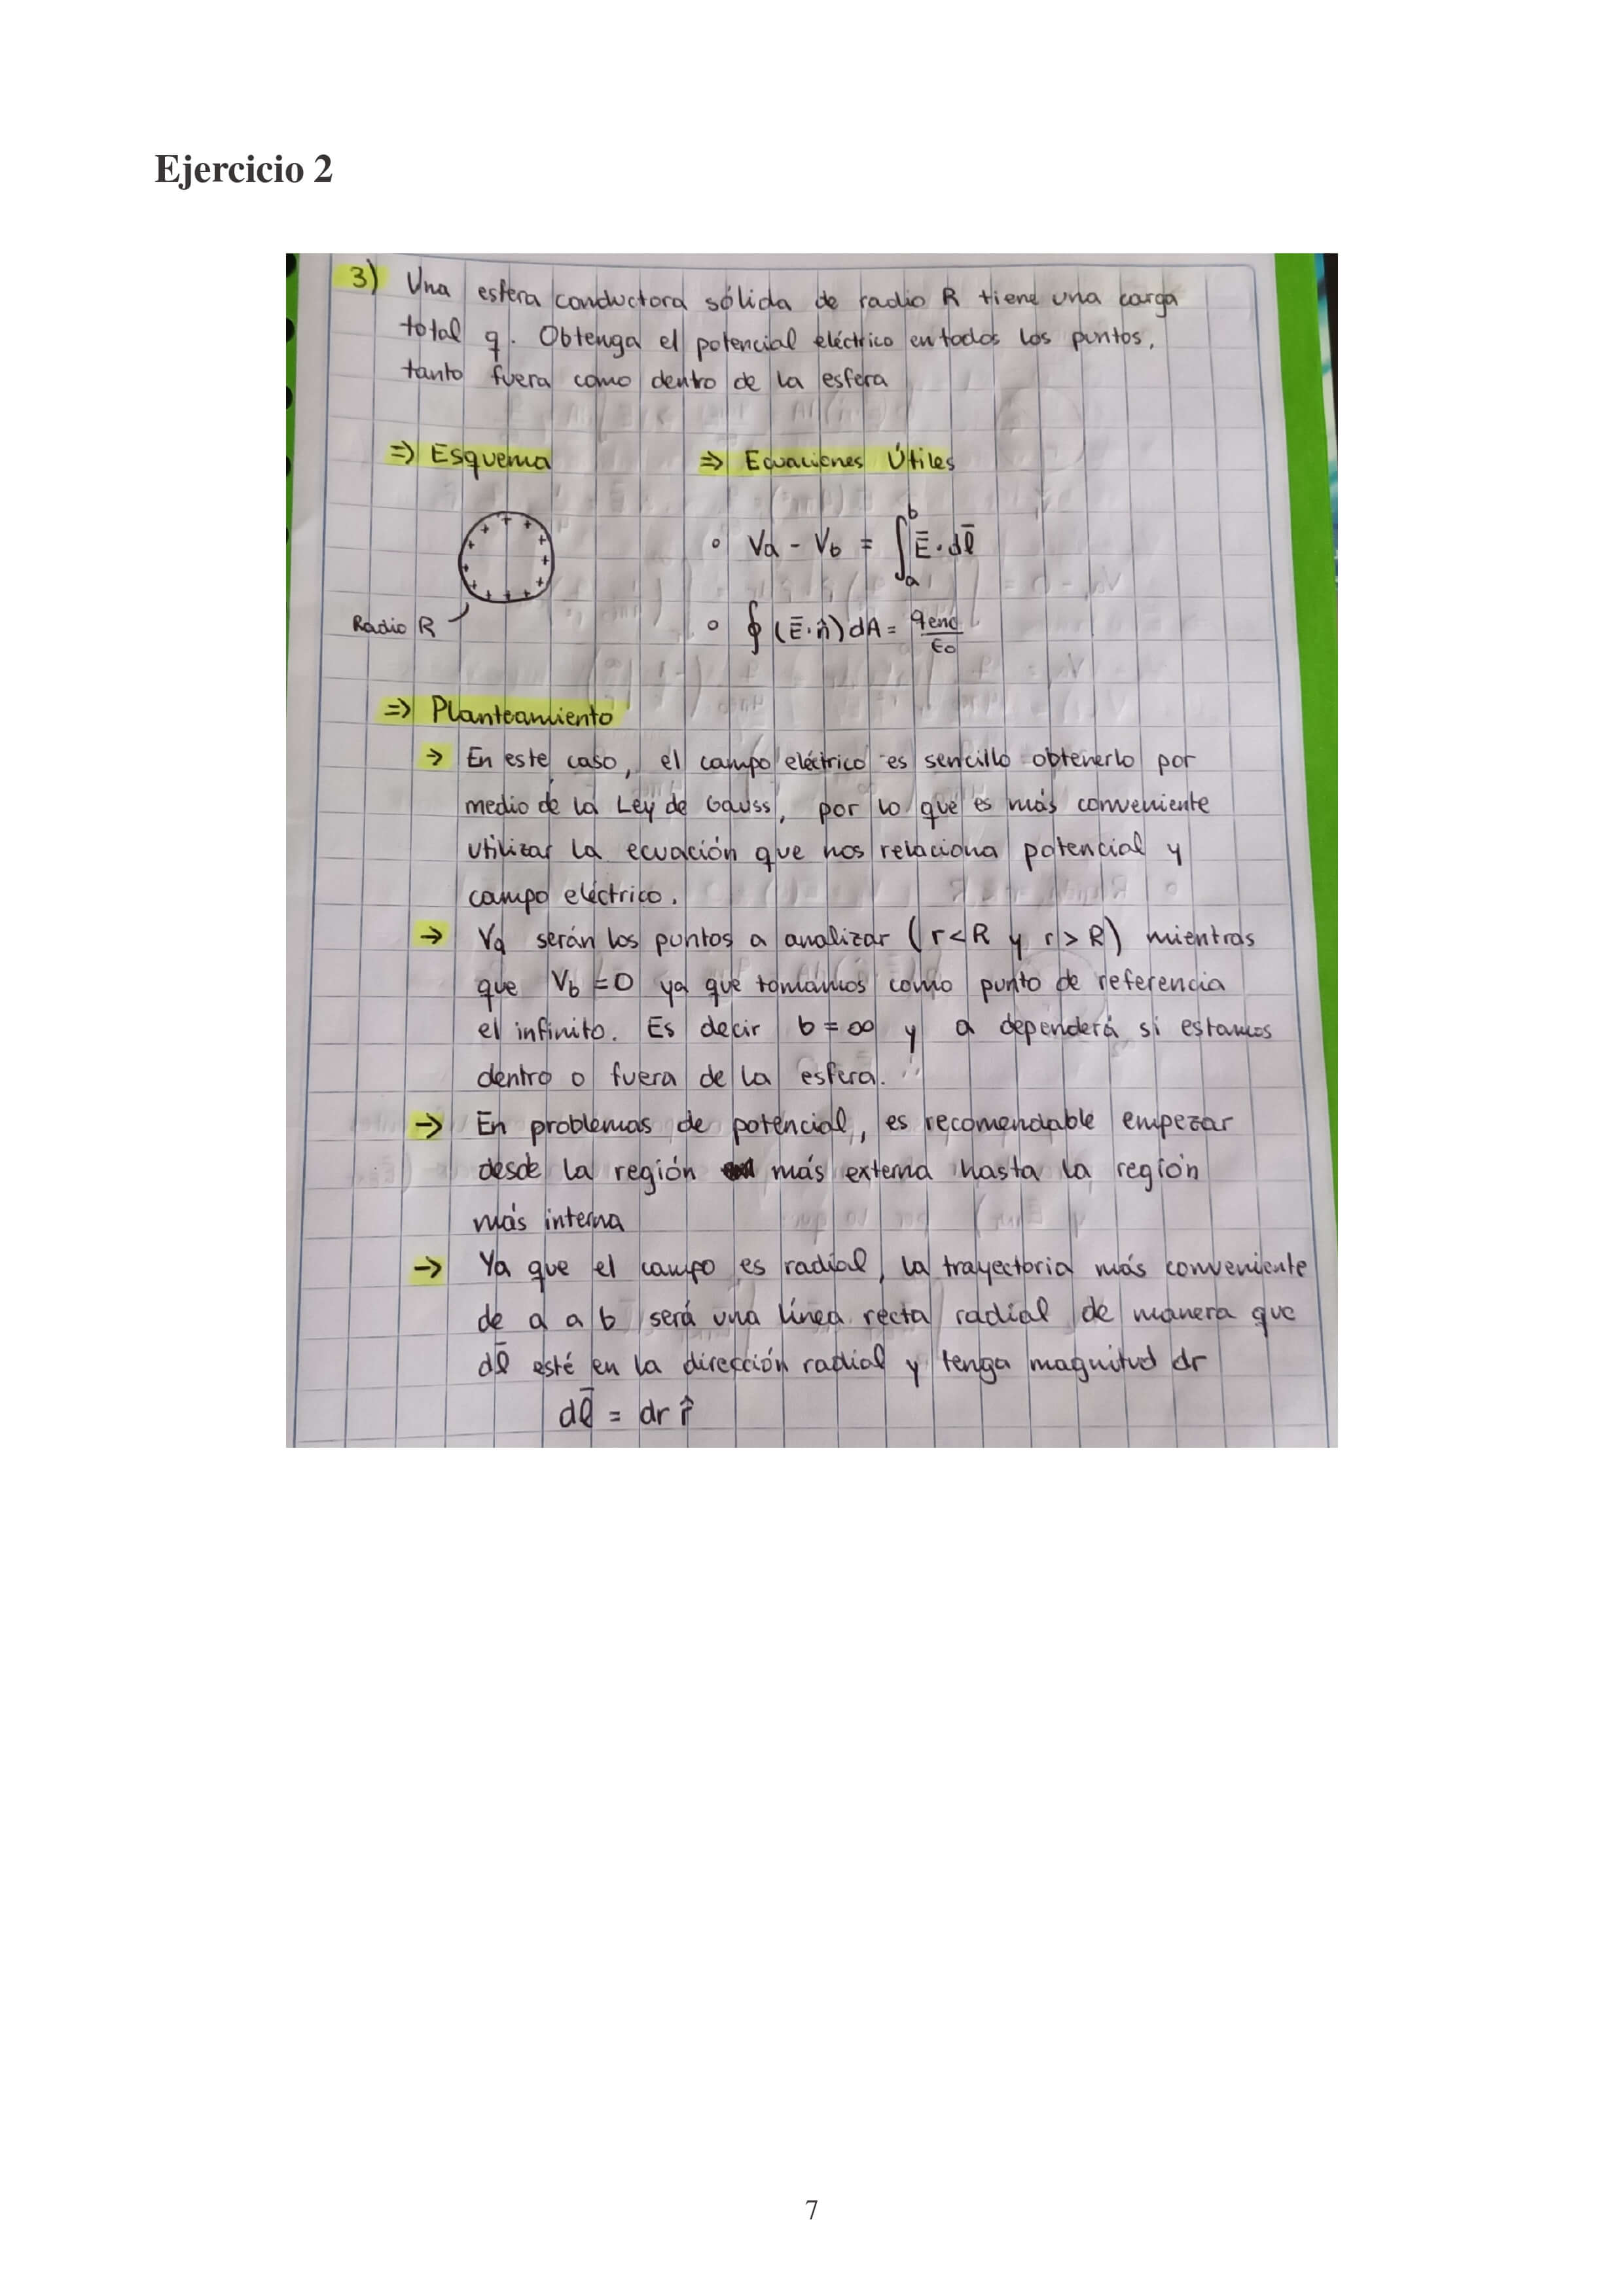 Ejercicio 2
3) Una esfera conductora sólida de radio R tiene una carga
total q. Obtenga el potencial eléctrico en todos los puntos,
tanto fuera como dentro de la esfera
⇒ Esquema
⇒ Ecuaciones Útiles
Radio R
∘ Va - Vb = ∫ₐᵇ Ē · dl̄
∘ ∮ (Ē · n̂) dA = qenc/ϵ₀
⇒ Planteamiento
→ En este caso, el campo eléctrico es sencillo obtenerlo por
medio de la Ley de Gauss, por lo que es más conveniente
utilizar la ecuación que nos relaciona potencial y
campo eléctrico.
→ Va serán los puntos a analizar (r<R y r>R) mientras
que Vb=0 ya que tomamos como punto de referencia
el infinito. Es decir b=∞ y a dependerá si estamos
dentro o fuera de la esfera.
→ En problemas de potencial, es recomendable empezar
desde la región más externa hasta la región
más interna
→ Ya que el campo es radial, la trayectoria más conveniente
de a a b será una línea recta radial de manera que
dl̄ esté en la dirección radial y tenga magnitud dr
dl̄ = dr r̂
7